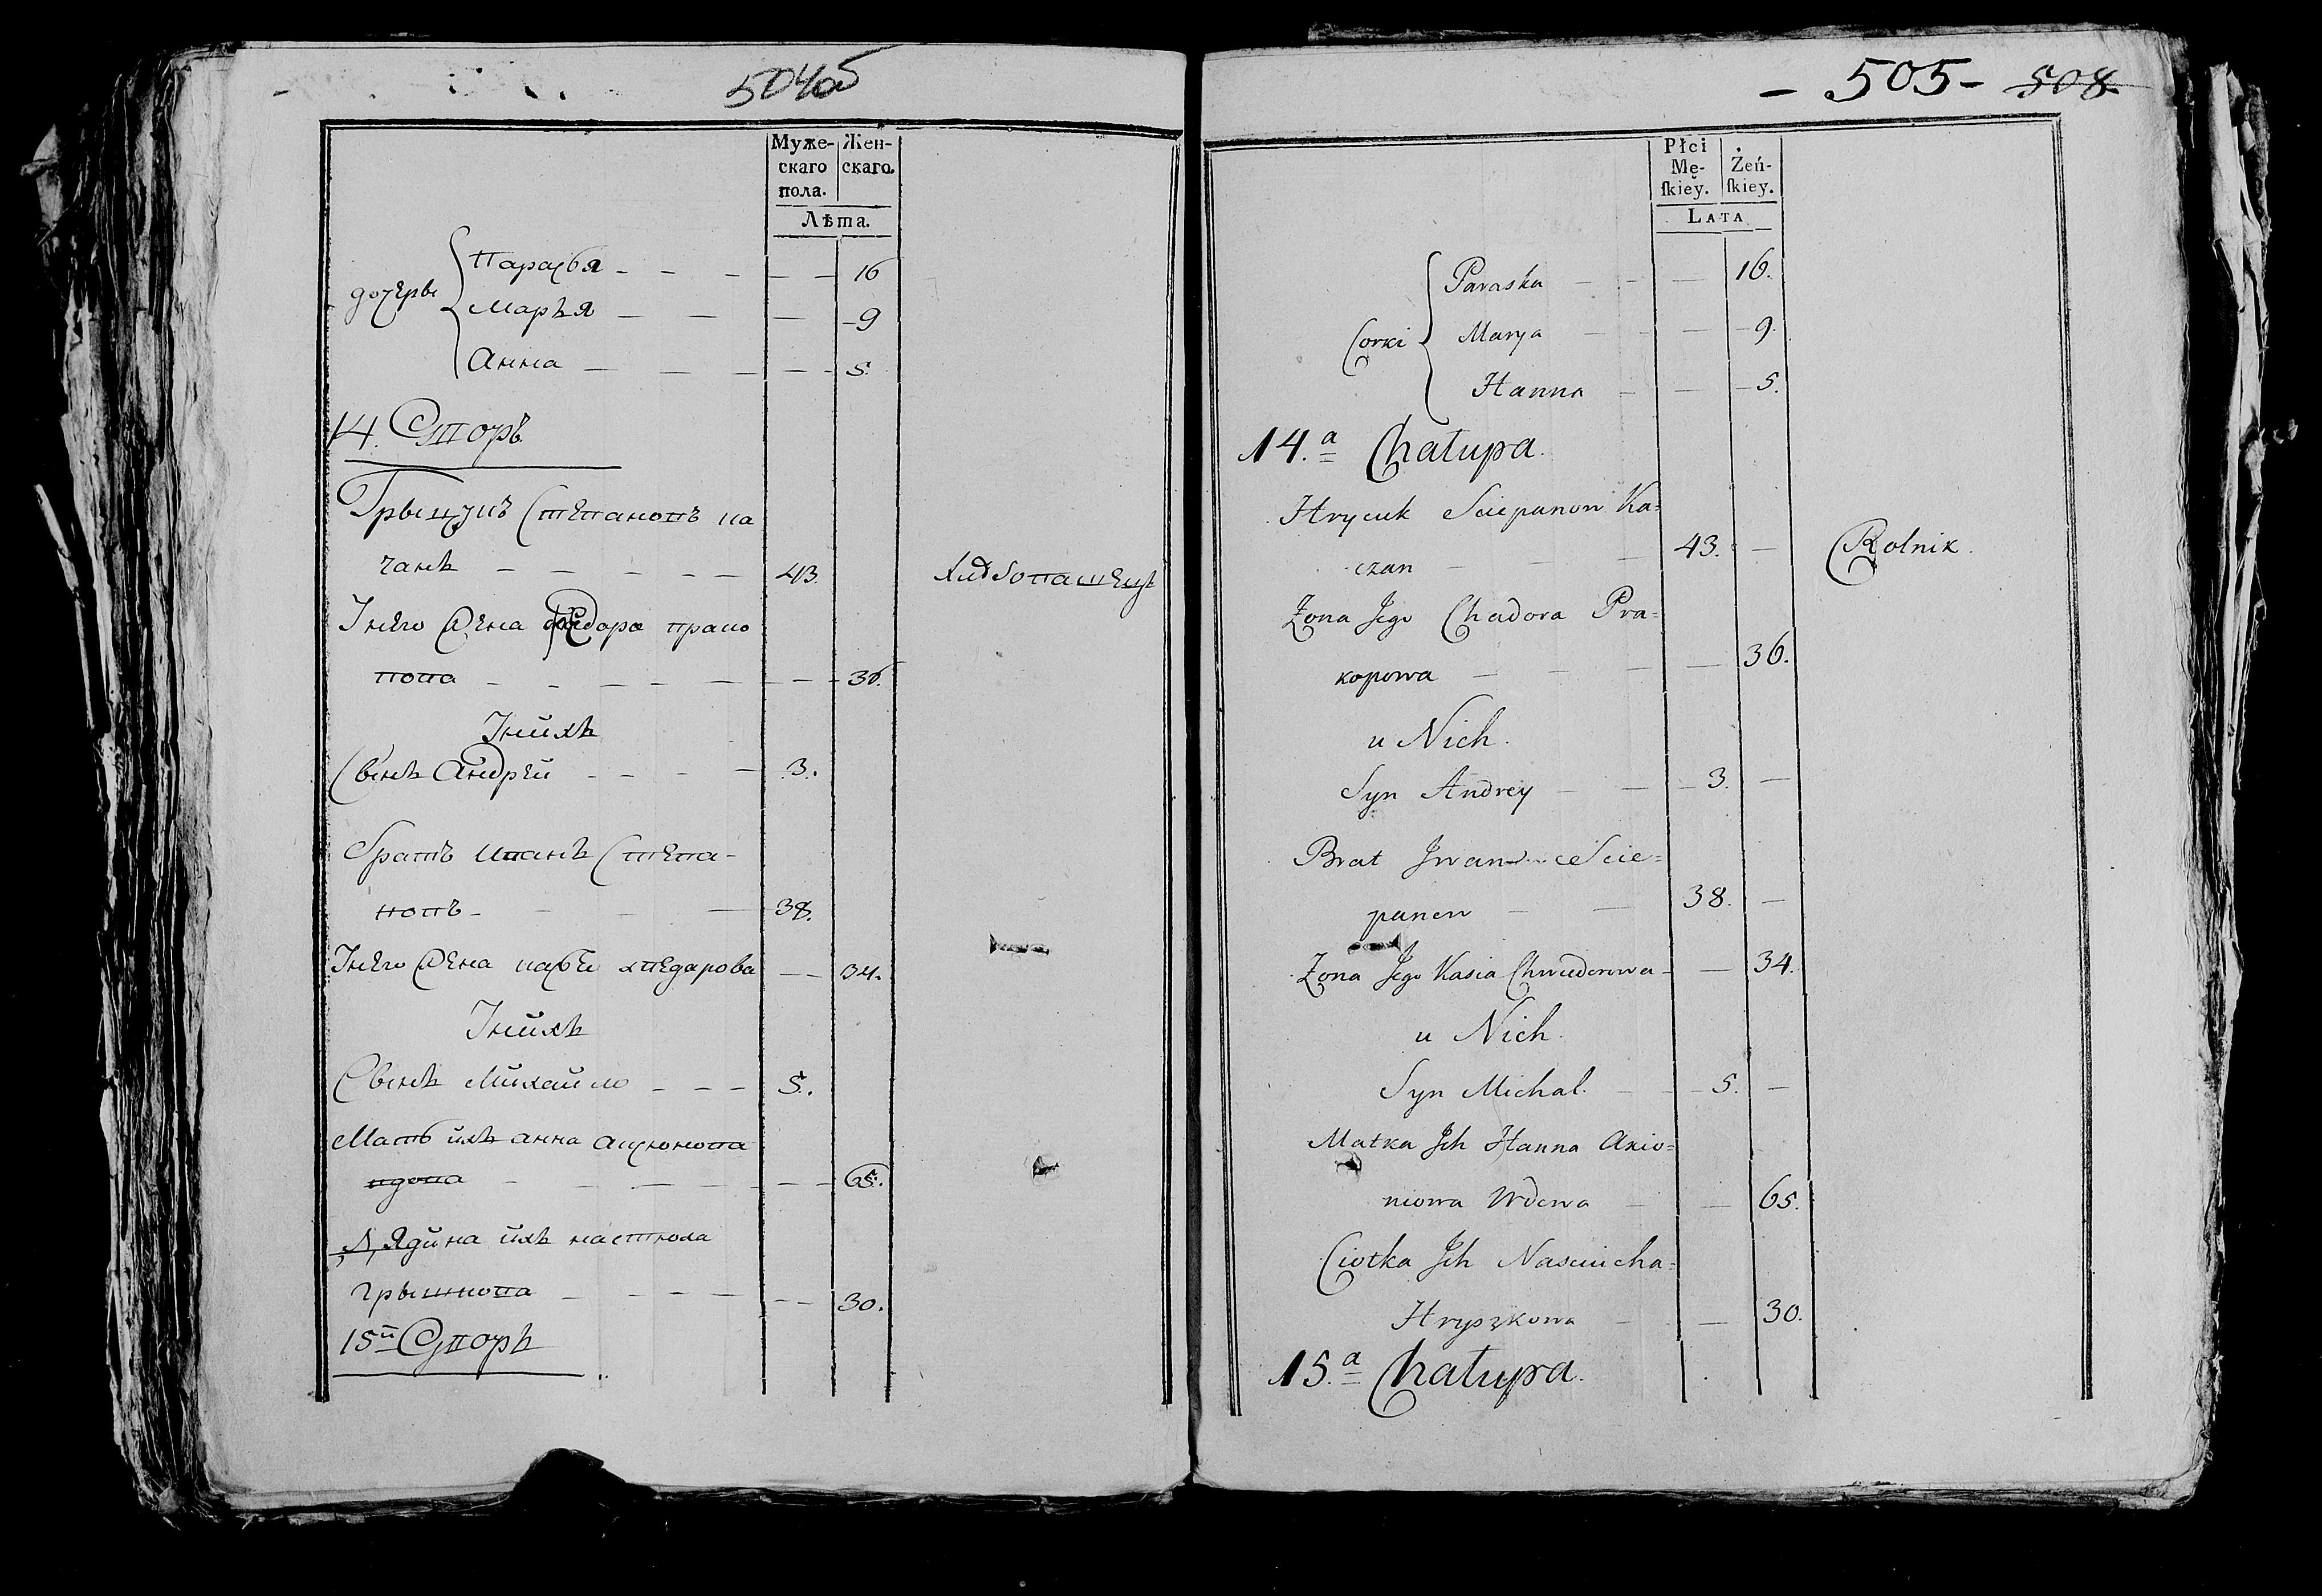 504об
Муже-
скаго
пола.
Жен-
скаго.
Лѣта.
дочерьи
Парасья - - - - - 16
Марья - - - 9
Анна - - - - 5.
14. Дворъ
Грыцукъ Степановъ ка
чанъ - - - - - 43. Хлебопашецъ
У него жена федора прако
пова - - - - - - - 36.
У нихъ
Сынъ Андрей - - - - 3.
братъ иванъ Степа-
новъ - - - - 38.
У него жена кася хведарова - - 34.
У нихъ
Сынъ Михайло - - - 5.
Мать ихъ анна аксюнова
вдова - - - - - - - 65.
Лядина ихъ настюха
грышкова - - - - - - - 30.
15й Дворъ
- 505- 508-
Płci
Mę-
ſkiey.
Żeń-
ſkiey.
LATA
Corki
Paraska - - - 16.
Marya - - - - 9.
Hanna - - - 5.
14.a Chałupa.
Hrycuk Sciepanow Ka=
czan - - - 43. - Rolnik.
Żona Jego Chadora Pra=
kopowa - - - - 36.
u Nich.
Syn Andrey - - - 3. -
Brat Jwan Scie=
panow - - 38. -
Żona Jego Kasia Chwiedorowa - - 34.
u Nich.
Syn Michal. - - 5. -
Matka Jch Hanna Axio=
niowa Wdowa - - 65.
Ciotka Jch Nasciucha=
Hryszkowa - - 30.
15.a Chałupa.